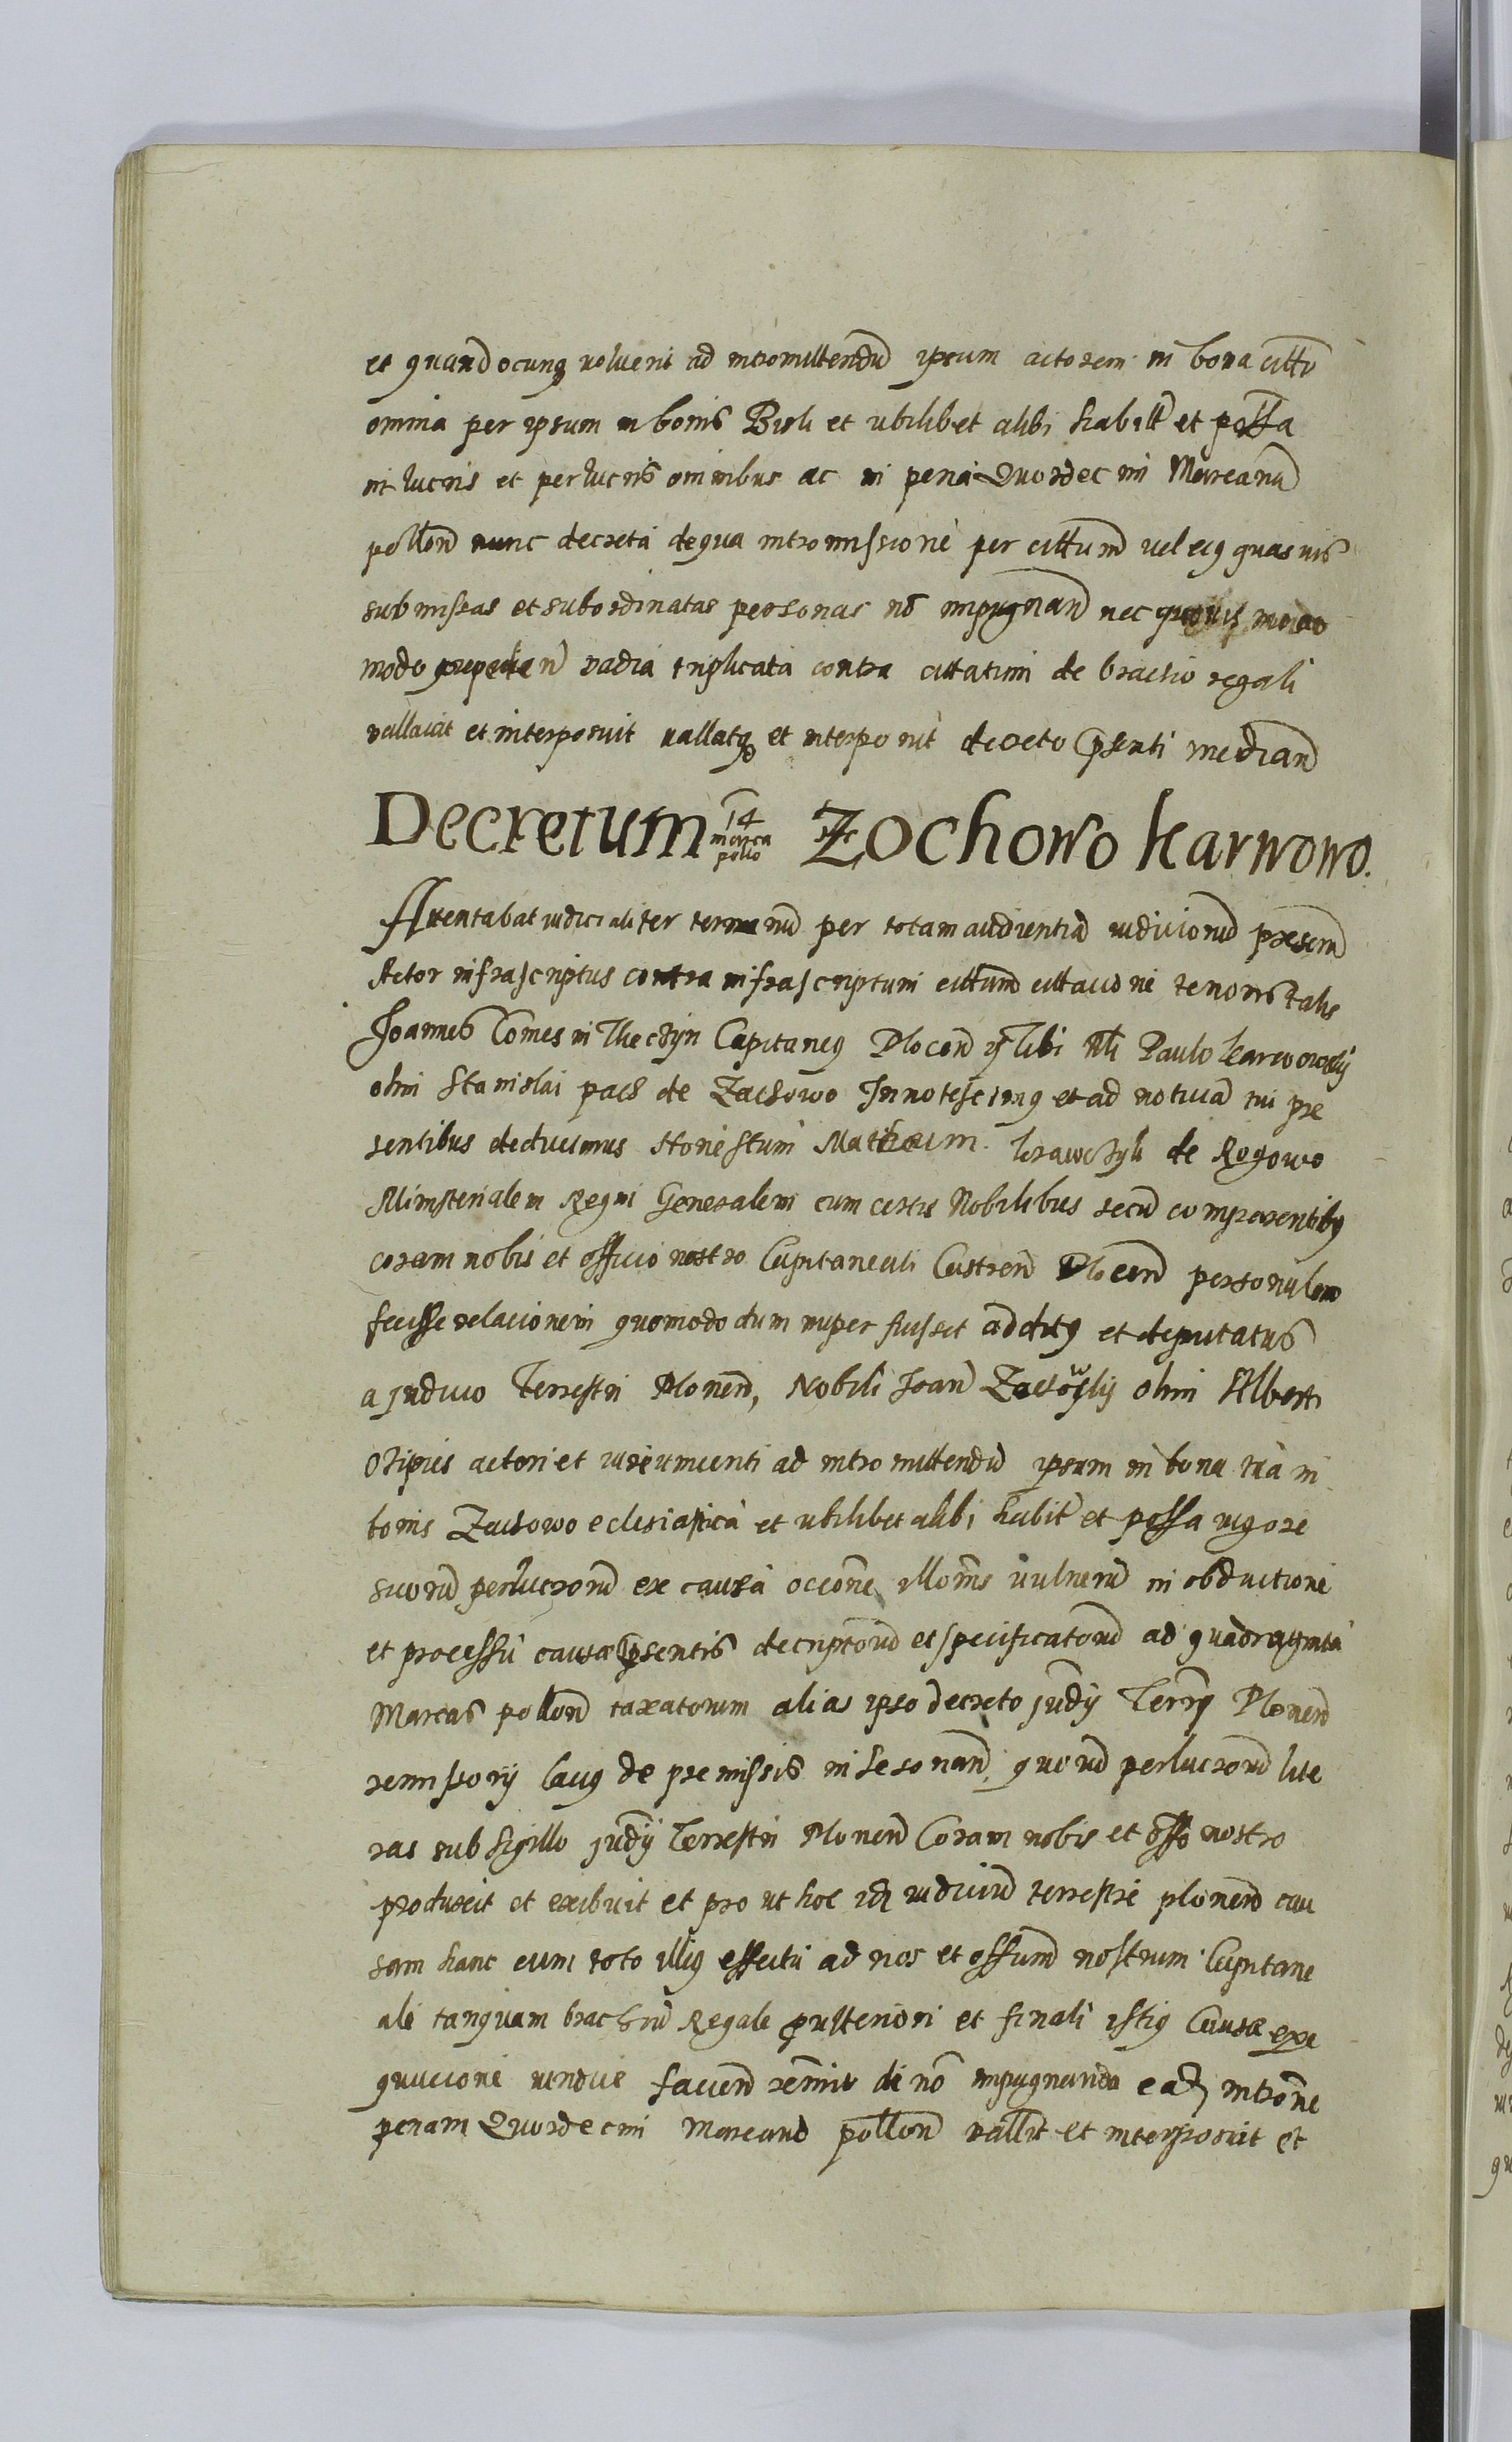 et quandocunq voluerit ad intromittendũ ipsum actorem in bona citti
omnia per ipsum in bonis Birli et ubilibet alibi habitt et possa
in lucris et perlucris omnibus ac in pena Quordecim Marcarũ
pollon nunc decreta de qua intromissione per cittum vel eiq quasvis
submissas et subordinatas personas nõ impugnan nec quovis modo
modo prepedien vadia triplicata contra cittatum de brachio regali
vallavit et interposuit vallatq et interponit decreto psenti median
Decretum 14 marca pollo Zochowo Karwowo.
Attentabat iudicialiter terminũ per totam audientiã iudiciorũ presentiũ
Actor infrascriptus contra infrascriptum cittum cittacione tenoris talis
Joannes Comes in Thectzyn Capitaneq Plocen tibi Nli Paulo Karwowsky
olim Stanislai pacs de Zachowo Innotescimq et ad noticiã tui pre
sentibus deducimus Honestum Matheum Krawczyk de Rogowo
Ministerialem Regni Generalem cum certis Nobilibus secũ comparentibq
coram nobis et officio nostro Capitaneali Castren Plocen personalem
fecisse relacionem quomodo dum nuper fuisset additq et deputatus
a Judicio Terrestri Plonen, Nobili Joan Zochowskij olim Alberti
Osipies actori et iureiuncenti ad intromittendũ ipsum in bona tua in
bonis Zachowo eclesiastica et ubilibet alibi habit et possa vigore
suorũ perlucrorũ ex causa occõne illorũ vulnerũ in obductione
et processu causæ psentis decriptorũ et specificatorũ ad quadraginta
Marcas pollon taxatorum alias ipso decreto Judij Terrij Plonen
remissorij laciq de premissis inseronan, quorũ perlucrorũ lite
ras sub sigillo Judij Terrestri Plonen Coram nobis et offo nostro
produxit et exibuit et pro ut hoc id iudiciũ terrestre plonen cau
sam hanc cum toto illiq effectu ad nos et offum nostrum Capitane
ale tanquam brachiũ Regale pulteriori et finali istiq Causæ exe
qucione vendice facien remit de nõ impugnanda ead intrõne
penam Quordecim Marcarũ pollon vallit et interposuit et